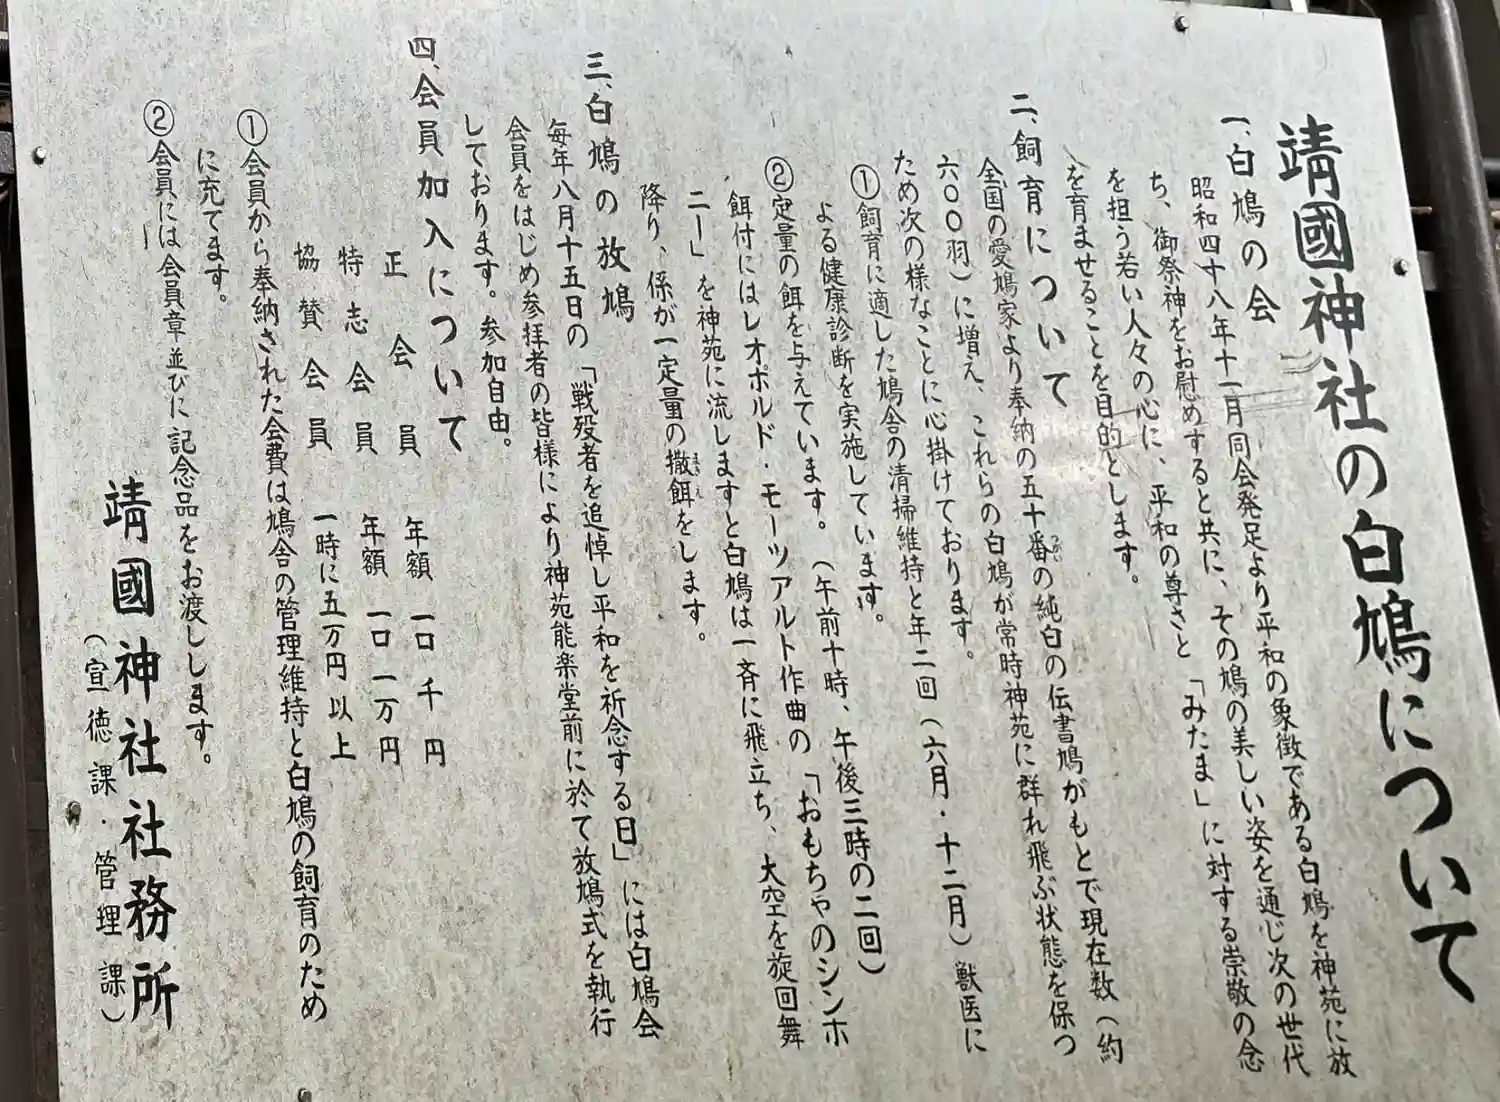 靖國神社の白鳩について
一、白鳩の会
昭和四十八年十一月同会発足より平和の象徴である白鳩を神苑に放
ち、御祭神をお慰めすると共に、その鳩の美しい姿を通じ次の世代
を担う若い人々の心に、平和の尊さと「みたま」に対する崇敬の念
を育ませることを目的とします。
二、飼育について
全国の愛鳩家より奉納の五十番の純白の伝書鳩がもとで現在数(約
六〇〇羽)に増え、これらの白鳩が常時神苑に群れ飛ぶ状態を保つ
ため次の様なことに心掛けております。
①飼育に適した鳩舎の清掃維持と年二回(六月・十二月)獣医に
よる健康診断を実施しています。
②定量の餌を与えています。(午前十時、午後三時の二回)
餌付にはレオポルド・モーツアルト作曲の「おもちゃのシンホ
ニー」を神苑に流しますと白鳩は一斉に飛立ち、大空を旋回舞
降り、係が一定量の撒餌をします。
三、白鳩の放鳩
毎年八月十五日の「戦歿者を追悼し平和を祈念する日」には白鳩会
会員をはじめ参拝者の皆様により神苑能楽堂前に於て放鳩式を執行
しております。参加自由。
四、会員加入について
正会員 年額 一口千円
特志会員 年額 一口一万円
協賛会員 一時に五万円以上
①会員から奉納された会費は鳩舎の管理維持と白鳩の飼育のため
に充てます。
②会員には会員章並びに記念品をお渡しします。
靖國神社社務所
(宣徳課・管理課)